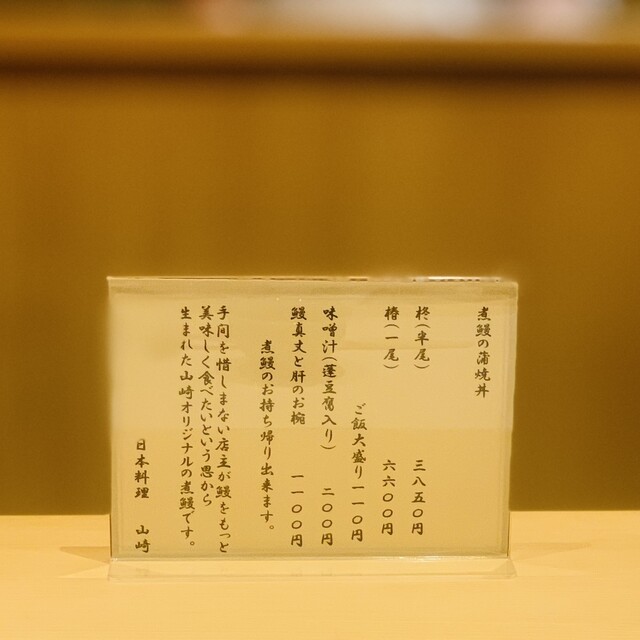 煮鰻の蒲焼丼
柊(半尾) 三八五〇円
椿(一尾) 六六〇〇円
ご飯大盛り一一〇円
味噌汁(蓮豆腐入り) 二〇〇円
鰻真丈と肝のお椀 一一〇〇円
煮鰻のお持ち帰り出来ます。
手間を惜しまない店主が鰻をもっと
美味しく食べたいという思から
生まれた山崎オリジナルの煮鰻です。
日本料理 山崎